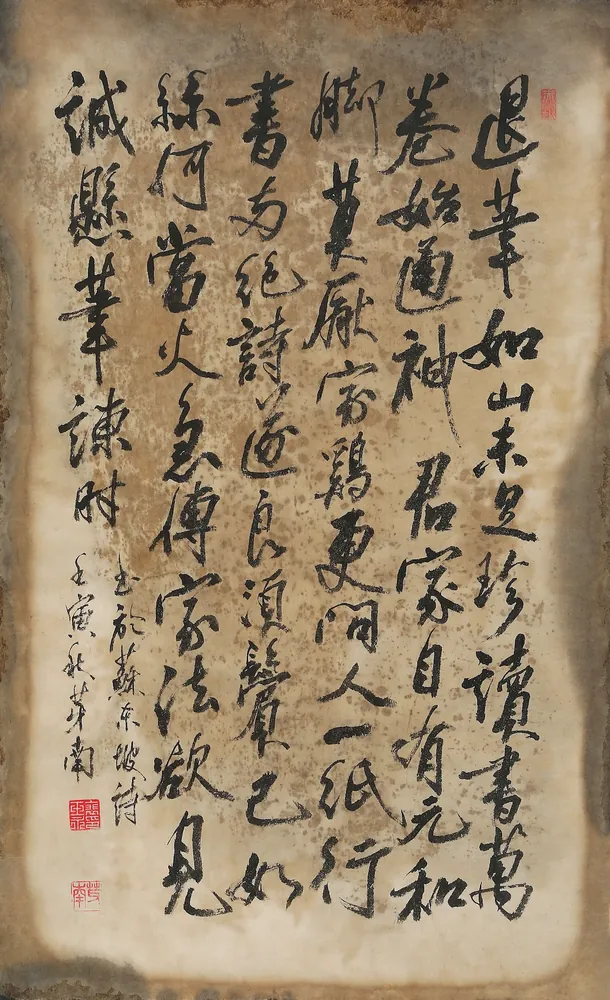 退筆如山未足珍讀書萬
卷始通神君家自有元和
脚莫厭家鷄更問人一紙行
書兩絕詩遂良須鬢已如
絲何當火急傳家法欲見
誠懸筆諫時
书於蘇東坡詩
壬寅秋南